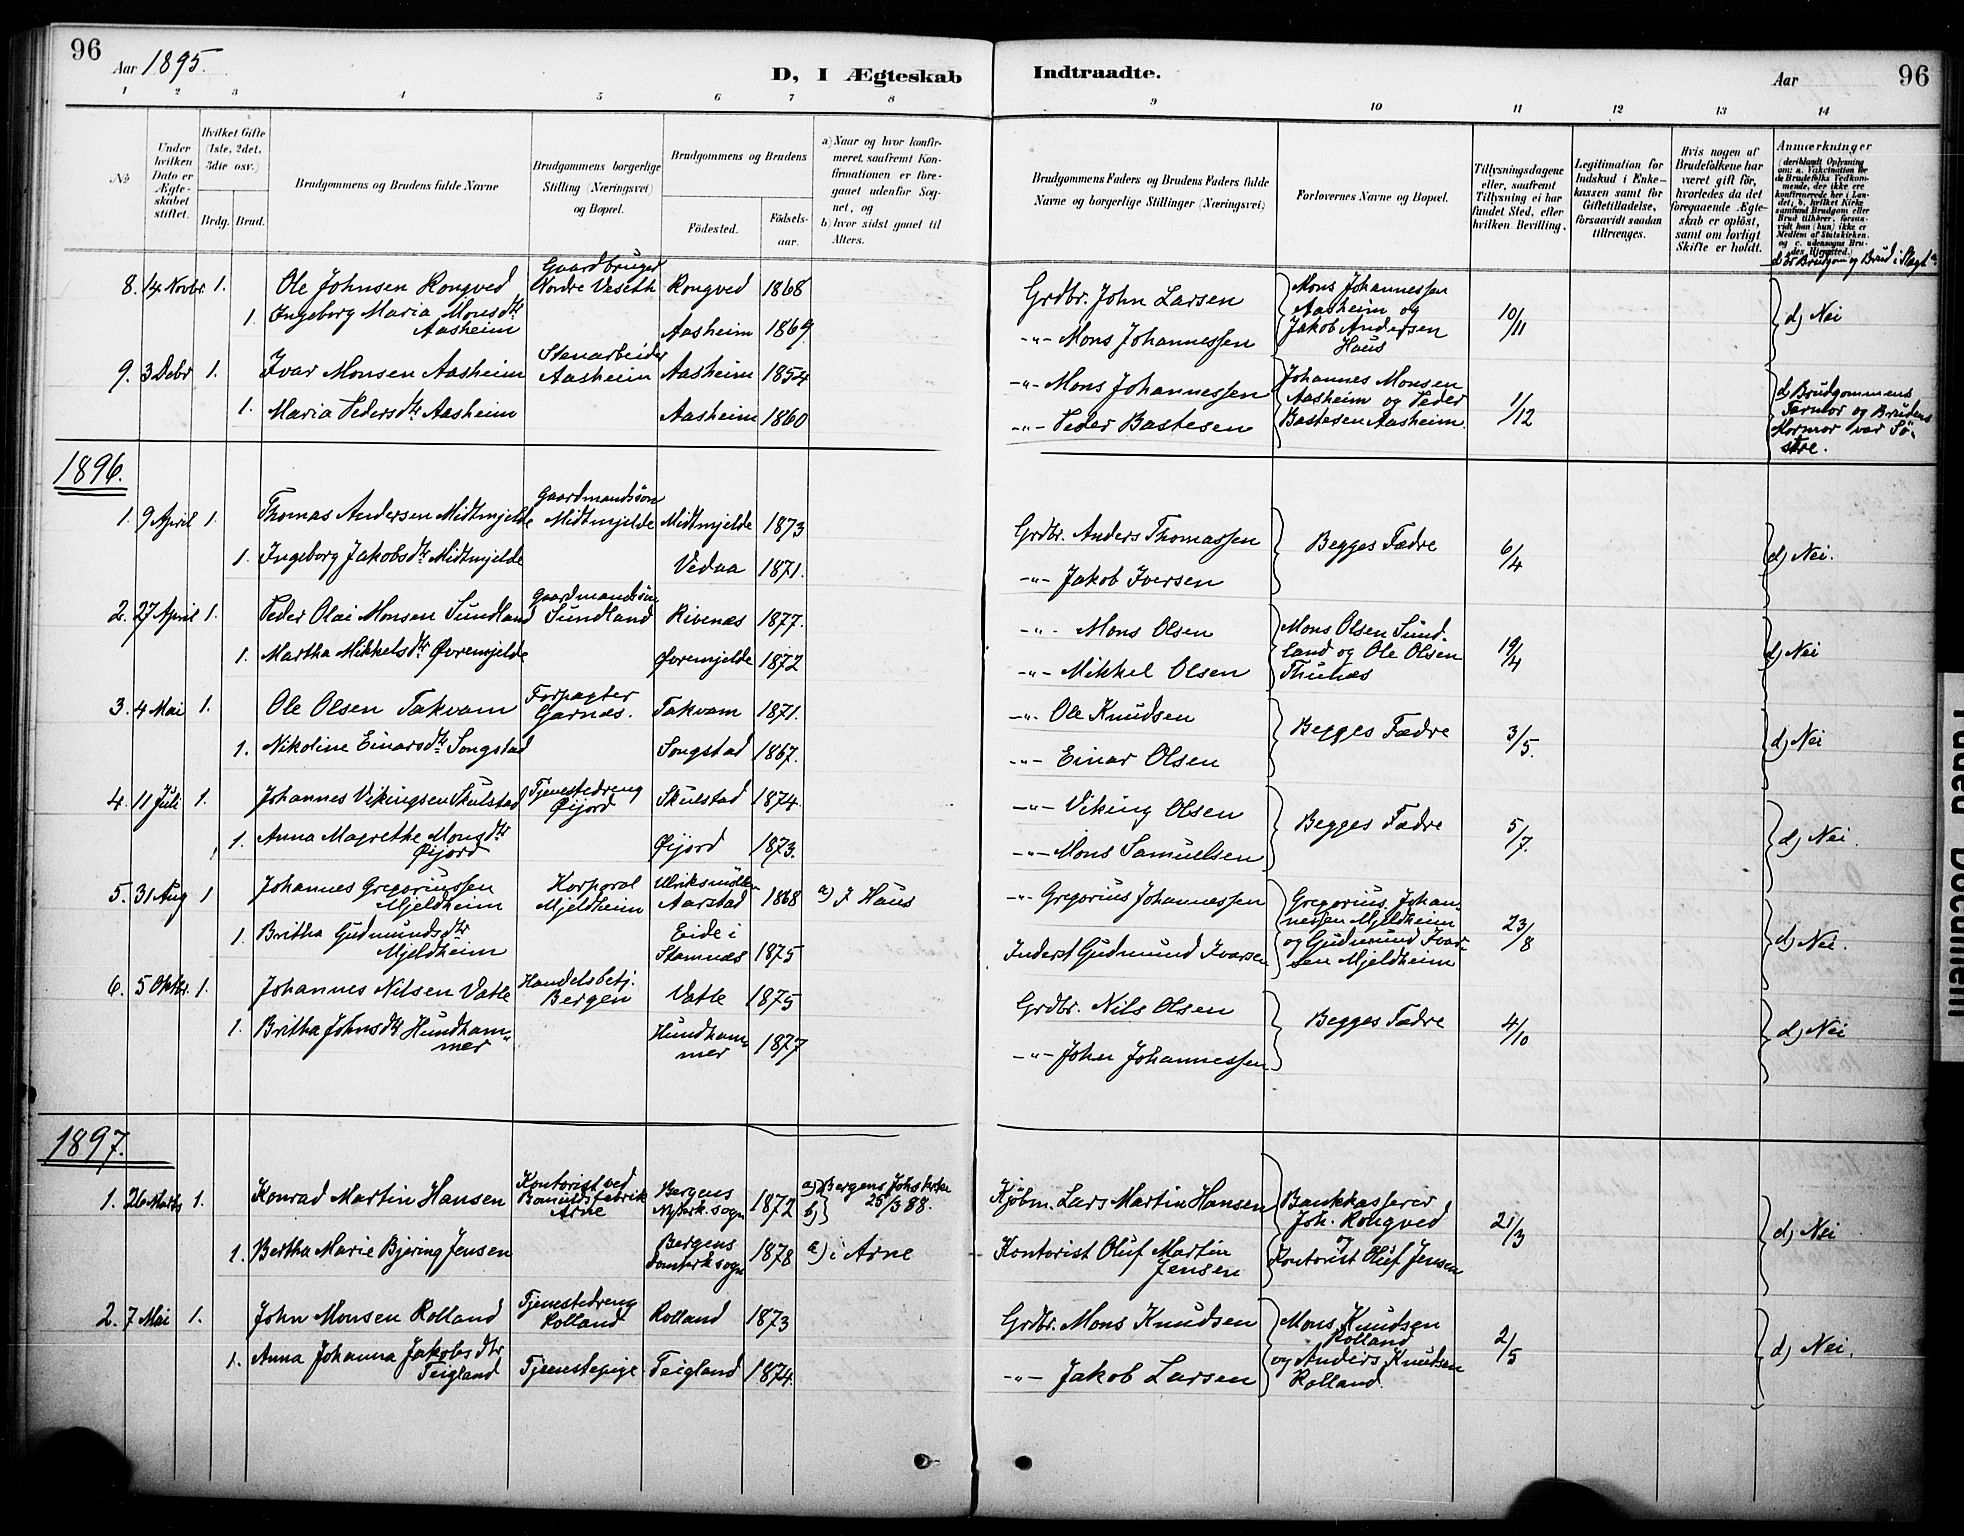 96
Aar 1895.
D, I Ægteskab
Indtraadte.
Aar
96
1 2 3 4 5 6 7 8 9 10 11 12 13 14
No
Under hvilken Dato er Ægteskabet stiftet.
Hvilket Gifte (1ste, 2det, 3die osv.)
Brdg. Brud.
Brudgommens og Brudens fulde Navne
Brudgommens borgerlige Stilling (Næringsvei) og Bopæl.
Brudgommens og Brudens
Fødested.
Fødsels-aar.
a) Naar og hvor konfirmeret, saafremt Konfirmationen er foregaaet udenfor Sognet, og
b) hvor sidst gaaet til Alters.
Brudgommens Faders og Brudens Faders fulde Navne og borgerlige Stillinger (Næringsvei)
Forlovernes Navne og Bopæl.
Tillysningsdagene eller, saafremt Tillysning ei har fundet Sted, efter hvilken Bevilling.
Legitimation for Indskud i Enkekassen samt for Giftetilladelse, forsaavidt saadan tiltrænges.
Hvis nogen af Brudefolkene har været gift før, hvorledes da det foregaaende Ægteskab er opløst, samt om lovligt Skifte er holdt.
Anmærkninger
(deriblandt Oplysning om: a. Vakcination for de Brudefolks Vedkommende, der ikke ere konfirmerede her i Landet; b. hvilket Kirkesamfund Brudgom eller Brud tilhører, forsaavidt han (hun) ikke er Medlem af Statskirken, og c. udensogns Brudes Hjemsted.)
d. Er Brudgom og Brud i Slægt?
8. 14 Novbr. 1. Ole Johnsen Rongved Gaardbruger Nordre Vaseth Rongved 1868 Grdbr. John Larsen Mons Johannessen Aasheim og Jakob Andersen Haus 10/11 d) Nei
1. Ingeborg Maria Monsdtr. Aasheim Aasheim 1869 -"- Mons Johannessen
9. 3 Debr 1. Ivar Monsen Aasheim Stenarbeider Aasheim Aasheim 1854 -"- Mons Johannessen Johannes Monsen Aasheim og Peder Bastesen Aasheim. 1/12 d) Brudgommens Farmor og Brudens Mormor var Søstre.
1. Maria Pedersdtr Aasheim Aasheim 1860 -"- Peder Bastesen
1896.
1. 9 April 1. Thomas Andersen Midtmjelde Gaardmandsøn Midtmjelde Midtmjelde 1873 Grdbr. Anders Thomassen Begges Fædre 6/4 d) Nei.
1. Ingeborg Jakobsdtr Midtmjelde Vedaa 1871. -"- Jakob Iversen
2. 27 April 1. Peder Olai Monsen Sundland Gaardmandsøn Sundland Rivenæs 1877. -"- Mons Olsen Mons Olsen Sundland og Ole Olsen Thunæs 19/4 d) Nei
1. Martha Mikkelsdtr Øvremjelde Øvremjelde 1872 -"- Mikkel Olsen
3. 4 Mai 1. Ole Olsen Takvam Forpagter Garnæs. Takvam 1871. -"- Ole Knudsen Begges Fædre 3/5. d) Nei
1. Nikoline Einarsdtr Songstad Songstad 1867. -"- Einar Olsen
4. 11 Juli 1. Johannes Vikingsen Skulstad Tjenestedreng Øijord Skulstad 1874. -"- Viking Olsen Begges Fædre 5/7. d) Nei.
1. Anna Magrethe Monsdtr Øijord Øijord 1873. -"- Mons Samuelsen
5. 31 Aug 1 Johannes Gregoriussen Mjeldheim Korporal Mjeldheim Aarstad 1868 a) I Haus -"- Gregorius Johannessen Gregorius Johannessen Mjeldheim og Gudmund Ivarsen Mjeldheim 23/8 d) Nei.
1. Britha Gudmundsdtr Mjeldheim Eide i Stamnæs 1875 Inderst Gudmund Ivarsen
6. 5 Oktbr. 1. Johannes Nilsen Vatle Handelsbetj. Bergen Vatle 1875 Grdbr. Nils Olsen Begges Fædre 4/10 d) Nei
1. Britha Johnsdtr Hundhammer Hundhammer 1877 -"- John Johannessen
1897.
1. 26 Marts 1. Konrad Martin Hansen Kontorist ved Bomuldsfabrik Arne Bergens Nykirk. sogn 1872 a) b) Bergens Johs kirke 25/3 88. Kjøbm. Lars Martin Hansen Bankkasserer Joh. Rongved og Kontorist Oluf Jensen 21/3 d) Nei
1. Bertha Marie Bjering Jensen Bergens Domkirk sogn 1878 a) i Arne Kontorist Oluf Martin Jensen
2. 7 Mai 1. John Monsen Rolland Tjenestedreng Rolland Rolland 1873 Grdbr. Mons Knudsen Mons Knudsen Rolland og Anders Knudsen Rolland. 2/5 d) Nei.
1. Anna Johanna Jakobsdtr Teigland Tjenestepige Teigland 1874. -"- Jakob Larsen